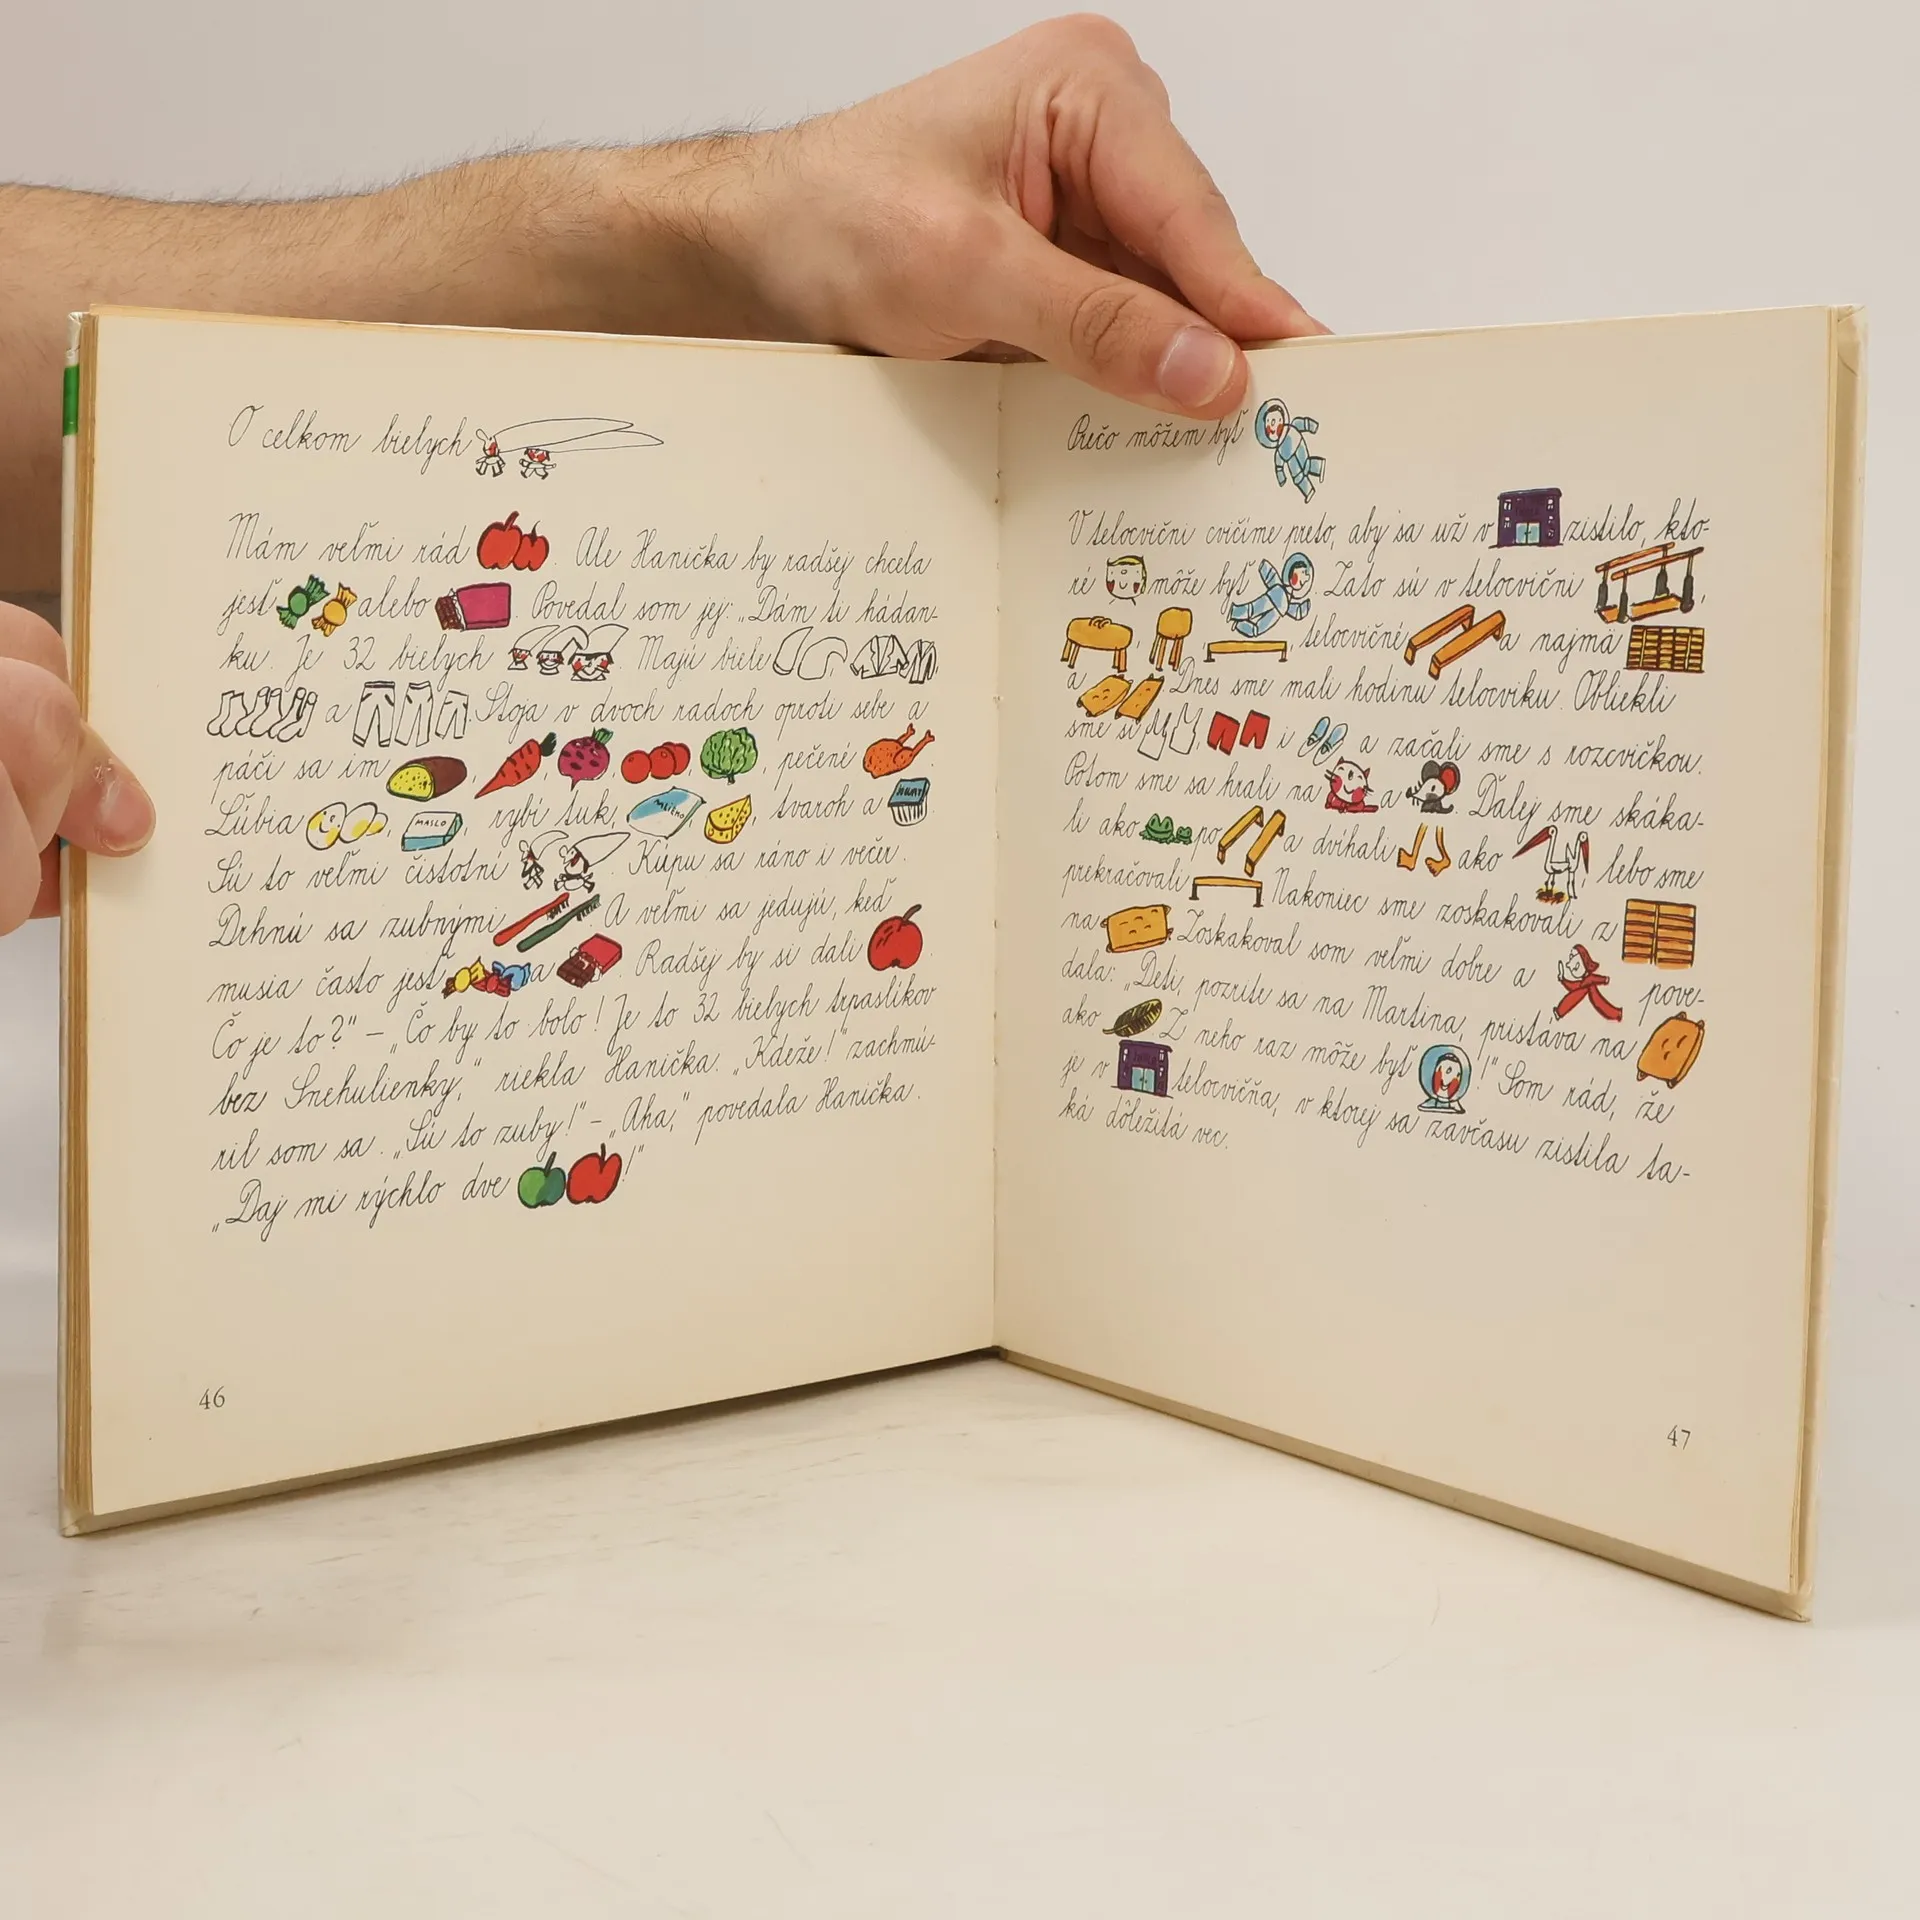 O celkom bielych
Mám veľmi rád . Ale Hanička by radšej chcela
jesť alebo . Povedal som jej: „Dám ti hádan-
ku. Je 32 bielych . Majú biele , ,
a . Stoja v dvoch radoch oproti sebe a
páči sa im , , , , , pečené .
Ľúbia , MASLO , rybí tuk, MLIEKO , , tvaroh a JOGURT .
Sú to veľmi čistotní . Kúpu sa ráno i večer.
Drhnú sa zubnými . A veľmi sa jedujú, keď
musia často jesť a . Radšej by si dali .
Čo je to?" – „Čo by to bolo! Je to 32 bielych trpaslíkov
bez Snehulienky," riekla Hanička. „Kdeže!" zachmú-
ril som sa. „Sú to zuby!" – „Aha," povedala Hanička.
„Daj mi rýchlo dve !"
46
Prečo môžem byť
V telocvični cvičíme preto, aby sa už v ŠKOLA zistilo, kto-
ré môže byť . Zato sú v telocvični ,
, , , telocvičné a najmä
a . Dnes sme mali hodinu telocviku. Obliekli
sme si , i a začali sme s rozcvičkou.
Potom sme sa hrali na a . Ďalej sme skáka-
li ako po a dvíhali ako , lebo sme
prekračovali . Nakoniec sme zoskakovali z
na . Zoskakoval som veľmi dobre a pove-
dala: „Deti, pozrite sa na Martina, pristáva na
ako . Z neho raz môže byť !" Som rád, že
je v ŠKOLA telocvičňa, v ktorej sa zavčasu zistila ta-
ká dôležitá vec.
47